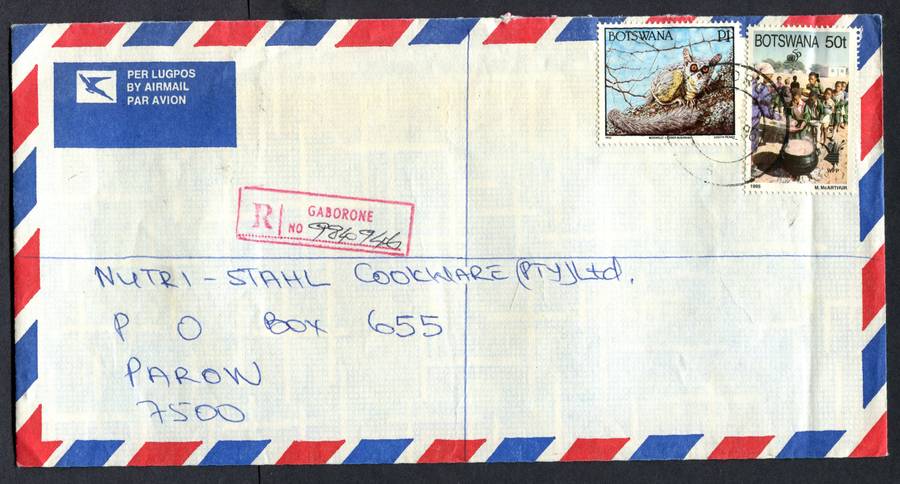 PER LUGPOS
BY AIRMAIL
PAR AVION
BOTSWANA P1
BOTSWANA 50t
1995 M. McARTHUR
WFP
R GABORONE
NO 9840946
NUTRI-STAHL COOKWARE (PTY) Ltd.
P O BOX 655
PAROW
7500